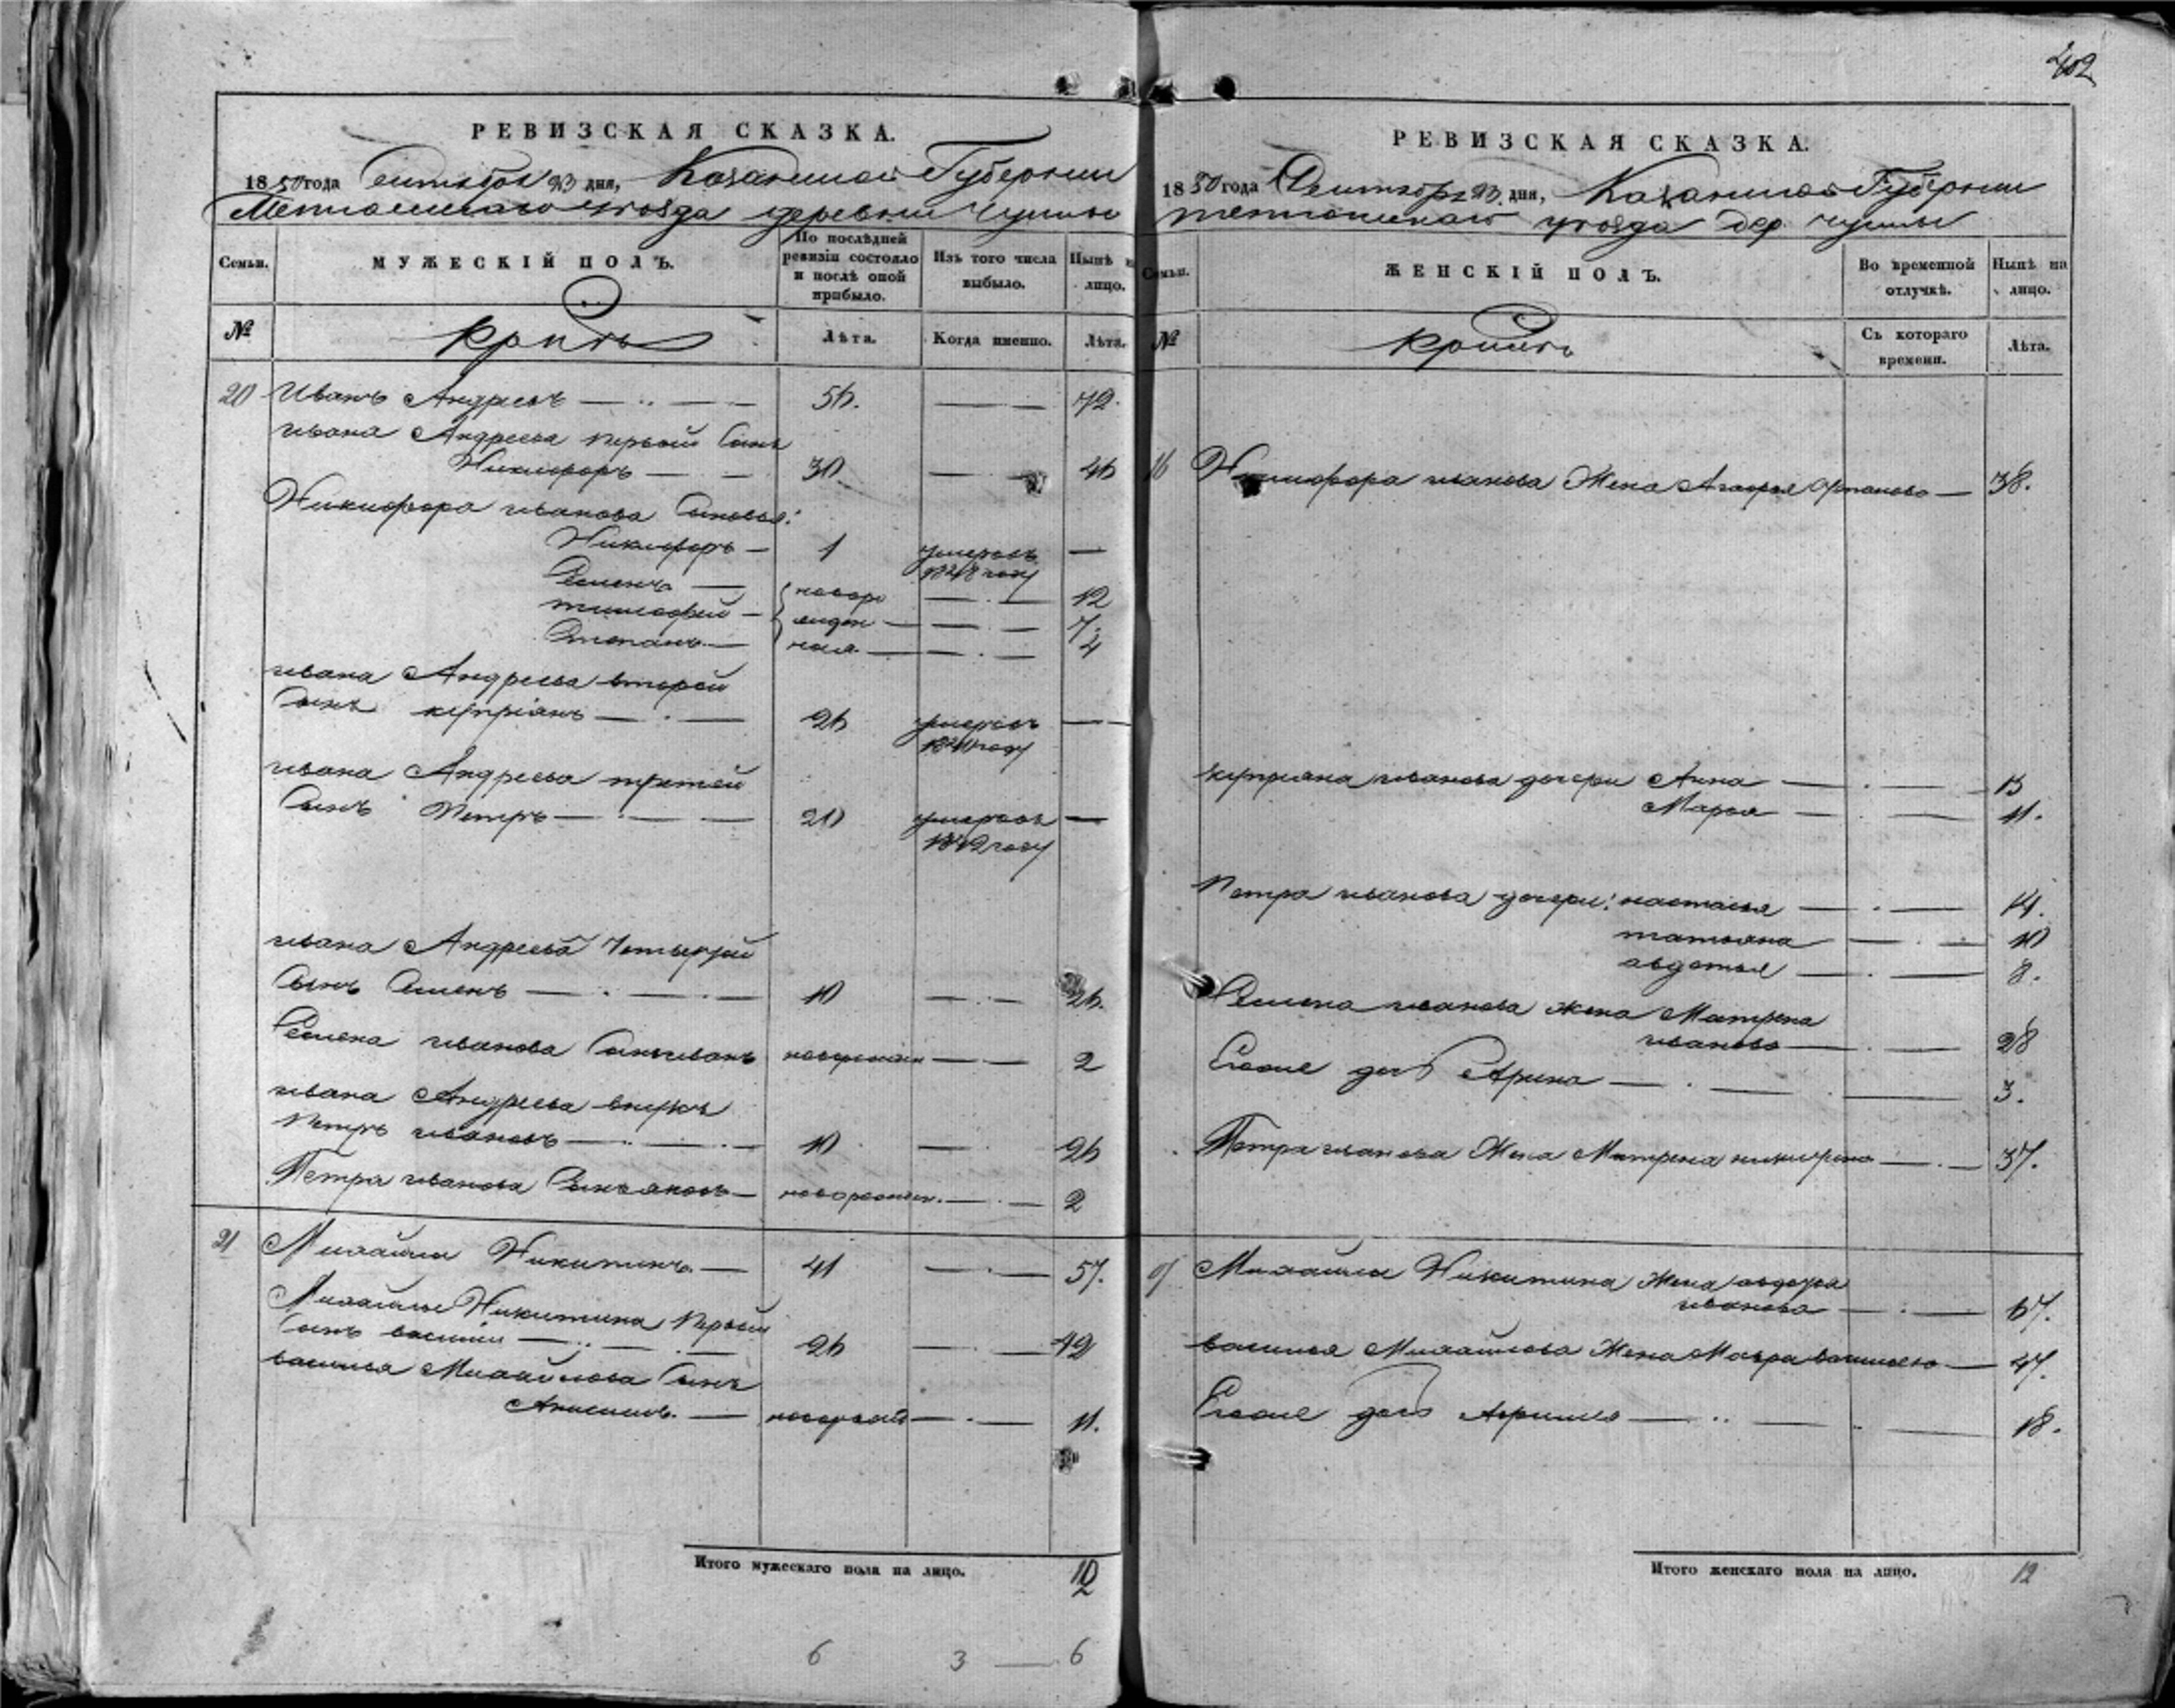 402
РЕВИЗСКАЯ СКАЗКА.
1850 года Октября 23 дня, Казанской Губернии
Тетюшскаго уѣзда деревни
Семьи.
МУЖЕСКІЙ ПОЛЪ.
По послѣдней ревизіи состояло и послѣ оной прибыло.
Изъ того числа выбыло.
Нынѣ на лицо.
№
Лѣта.
Когда именно.
Лѣта.
20 Иванъ Андреевъ — 56. — 72.
Ивана Андреева первой Сынъ
Никифоръ — 30 — 46
Никифора Иванова Сыновья:
Никифоръ — 1 умеръ въ —
году
Семенъ — новоро — 12
Тимофей — жден — 7.
Степанъ — ныя — 4
Ивана Андреева второй
Сынъ Купріянъ — 26 умеръ въ —
году
Ивана Андреева третей
Сынъ Петръ — 20 умеръ въ —
году
Ивана Андреева Четвертой
Сынъ Семенъ — 10 — 26.
Семена Иванова Сынъ Иванъ — 2
Ивана Андреева внукъ
Петръ Ивановъ — 10 — 26
Петра Иванова Сынъ Яковъ — 2
21 Михайла Никитинъ — 41 — 57.
Михайлы Никитина Первой
Сынъ Василии — 26 — 42
Василья Михайлова Сынъ
— 11.
Итого мужескаго пола на лицо. 12
6 3 — 6
РЕВИЗСКАЯ СКАЗКА.
1850 года Октября 23 дня, Казанской Губернии
Тетюшскаго уѣзда дер.
Семьи.
ЖЕНСКІЙ ПОЛЪ.
Во временной отлучкѣ.
Нынѣ на лицо.
№
Съ котораго времени.
Лѣта.
Никифора Иванова Жена — 38.
Купріяна Иванова дочери Анна — 13
Марья — 11.
Петра Иванова дочери: Настасья — 14.
Татьяна — 10
Авдотья — 8.
Семена Иванова жена Матрена
Иванова — 28
Ево дочь Арина — 3.
Петра Иванова Жена Матрена — 37.
Михайлы Никитина Жена
Иванова — 67.
Василья Михайлова Жена Мавра Васильева — 47.
Ево дочь — 18.
Итого женскаго пола на лицо. 12